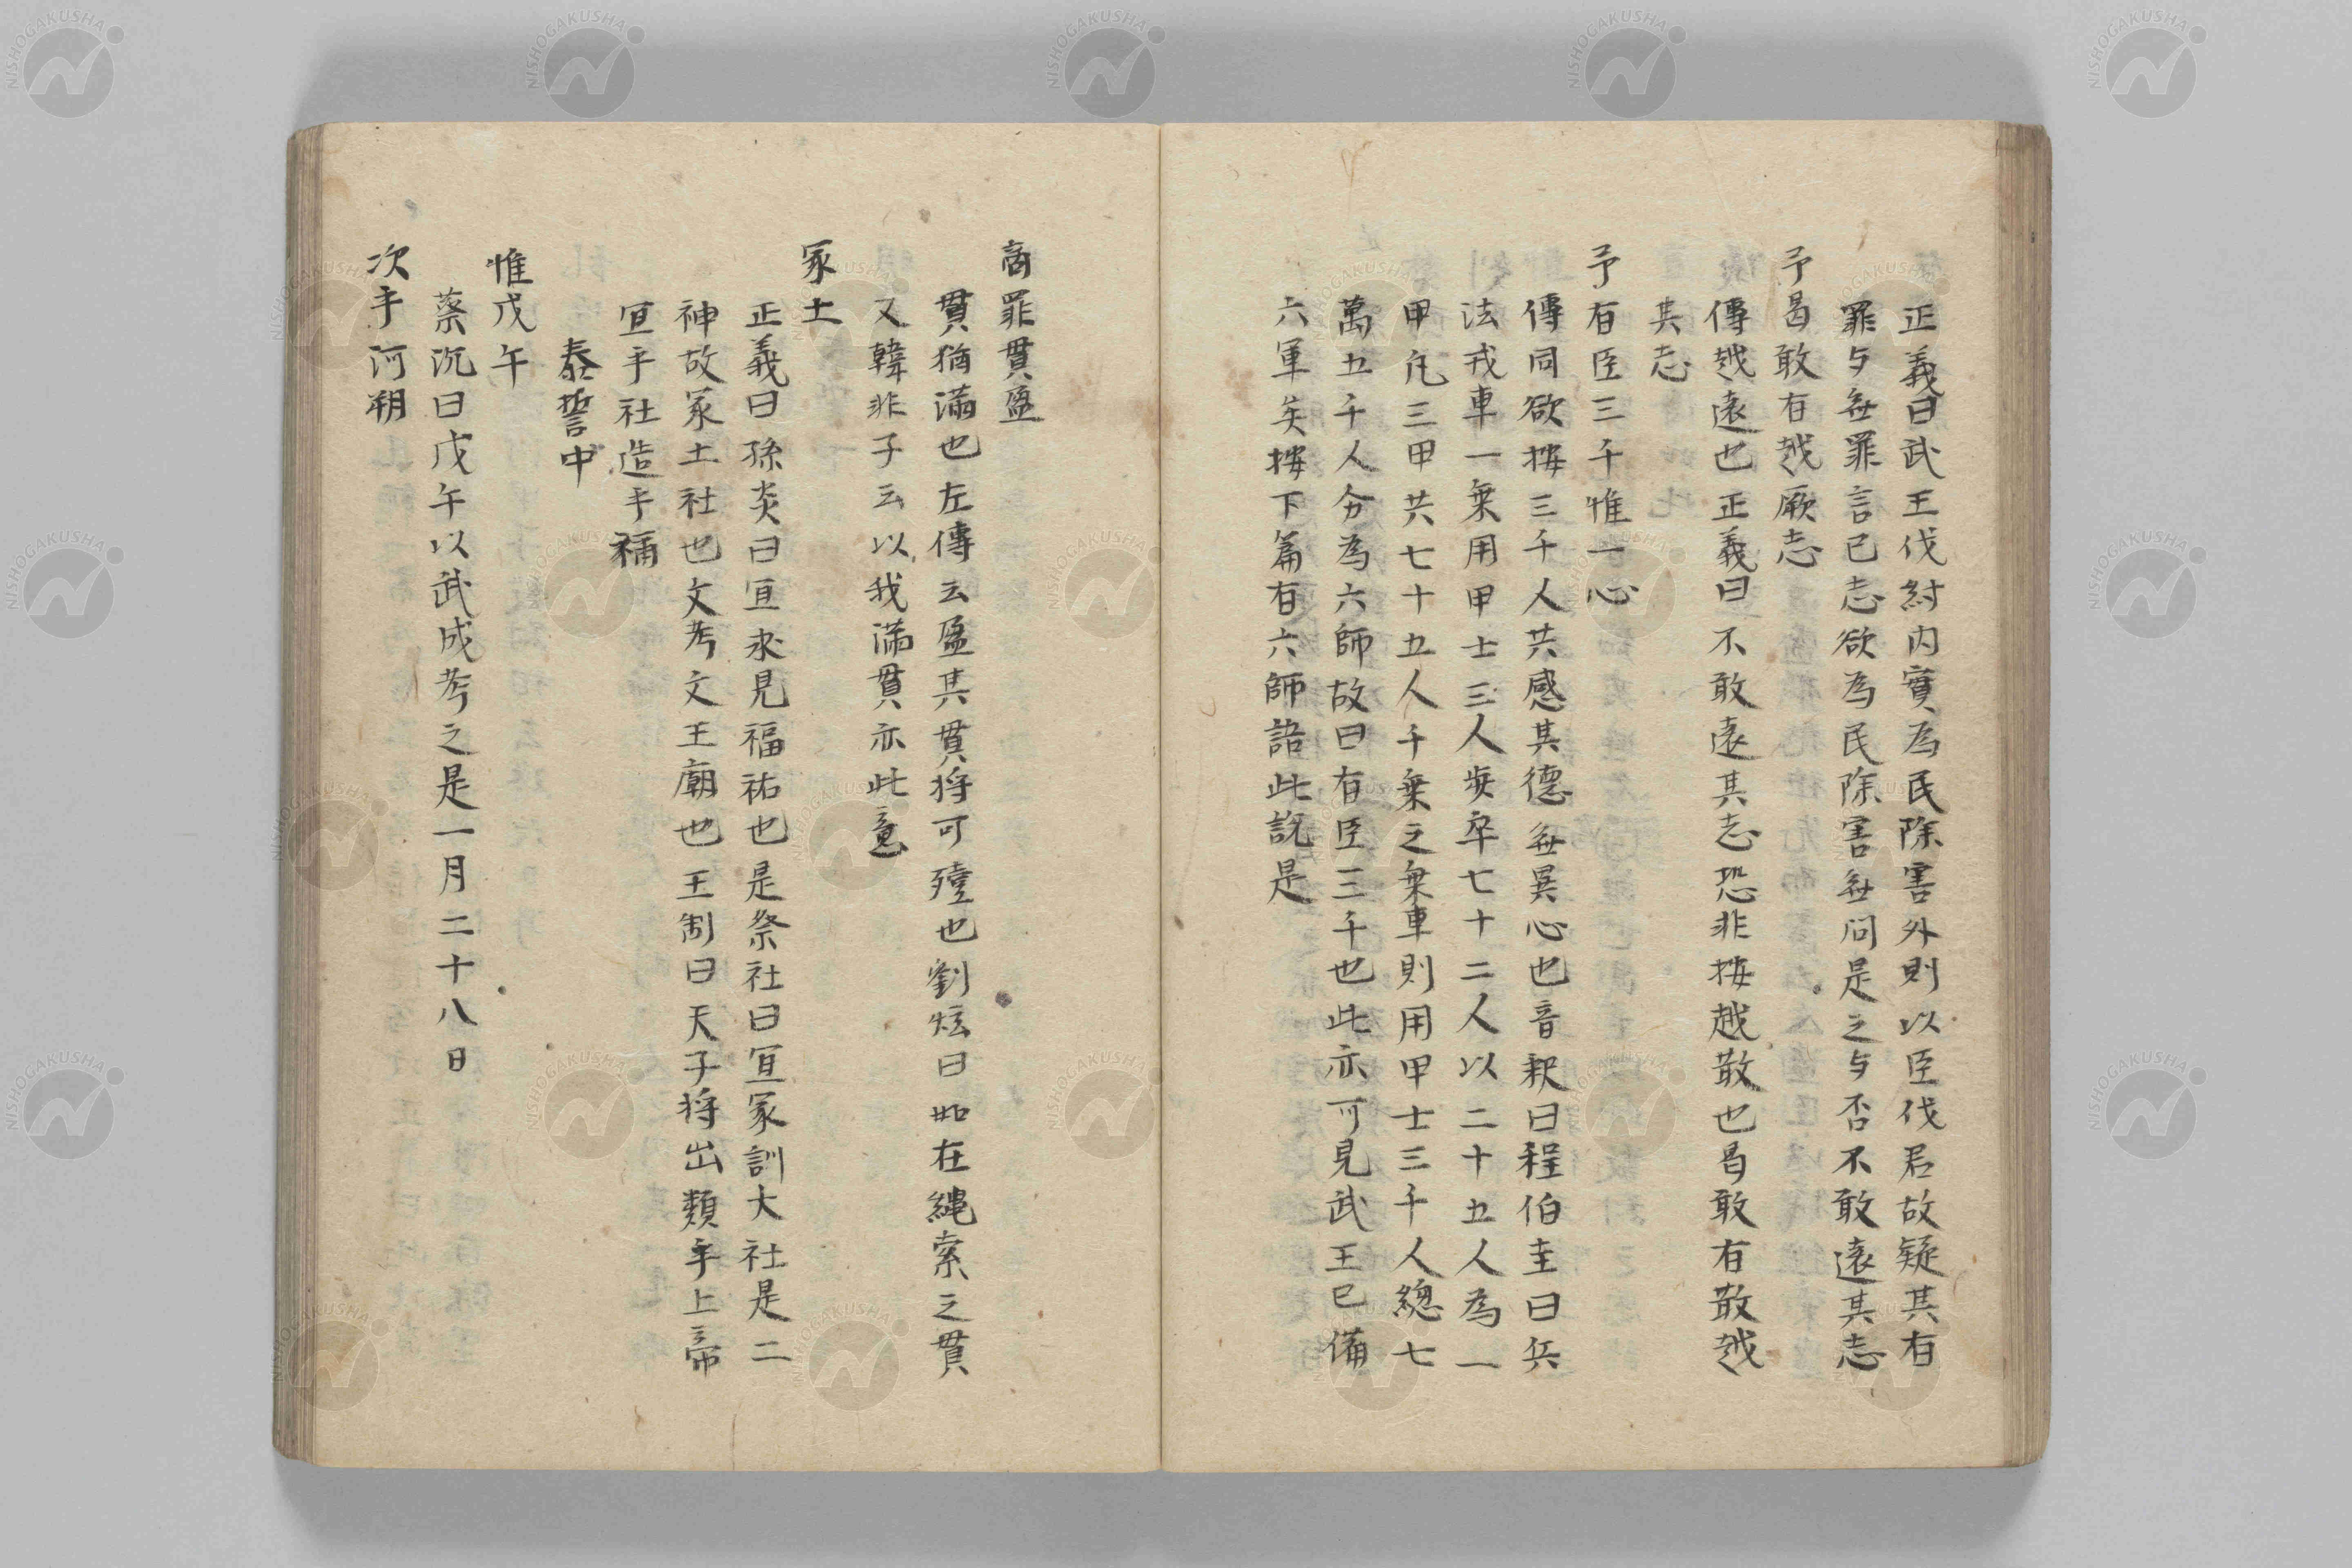 正義曰武王伐紂内實為民除害外則以臣伐君故疑其有
罪与無罪言已志欲為民除害無問是之与否不敢遠其志
予曷敢有越厥志
傳越遠也正義曰不敢遠其志恐非按越散也曷敢有散越
其志
予有臣三千惟一心
傳同欲按三千人共感其德無異心也音釈曰程伯圭曰兵
法戎車一乗用甲士三人歩卒七十二人以二十五人為一
甲凡三甲共七十五人千乗之乗車則用甲士三千人總七
萬五千人分為六師故曰有臣三千也此亦可見武王已備
六軍矣按下篇有六師語此説是
商罪貫盈
貫猶滿也左傳云盈其貫将可殪也劉炫曰如在縄索之貫
又韓非子云以我滿貫亦此意
冢土
正義曰孫炎曰宜求見福祐也是祭社曰宜冢訓大社是二
神故冢土社也文考文王廟也王制曰天子将出類乎上帝
宜乎社造乎禰
泰誓中
惟戊午
蔡沉曰戊午以武成考之是一月二十八日
次乎河朔
NISHOGAKUSHA